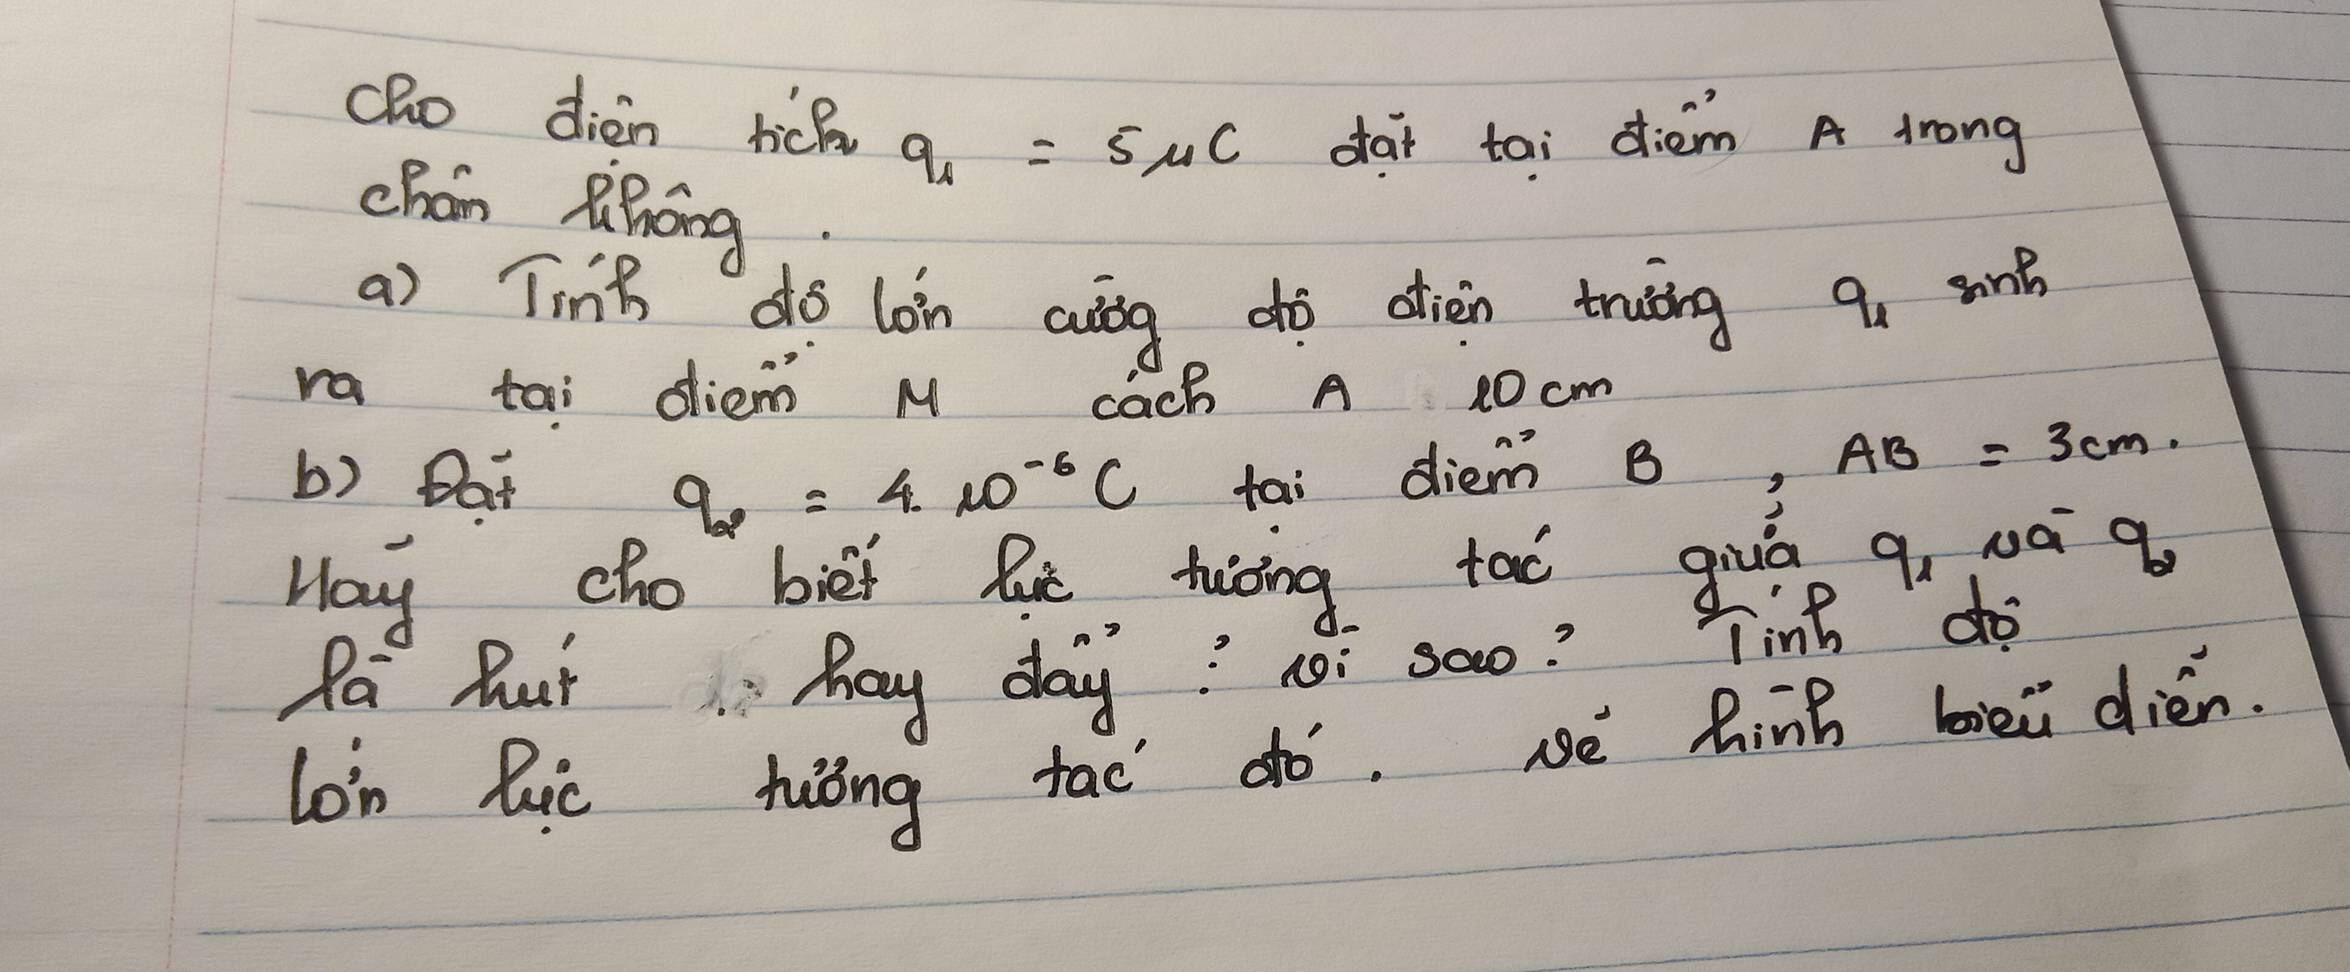 Cho điện tích q₁ = 5μC đặt tại điểm A trong
chân không.
a) Tính độ lớn cường độ điện trường q₁ sinh
ra tại điểm M cách A 10 cm
b) Đặt q₂ = 4.10⁻⁶C tại điểm B, AB = 3cm.
Hãy cho biết lực tương tác giữa q₁ và q₂
là hút hay đẩy? vì sao? Tính độ
lớn lực tương tác đó. vẽ hình biểu diễn.